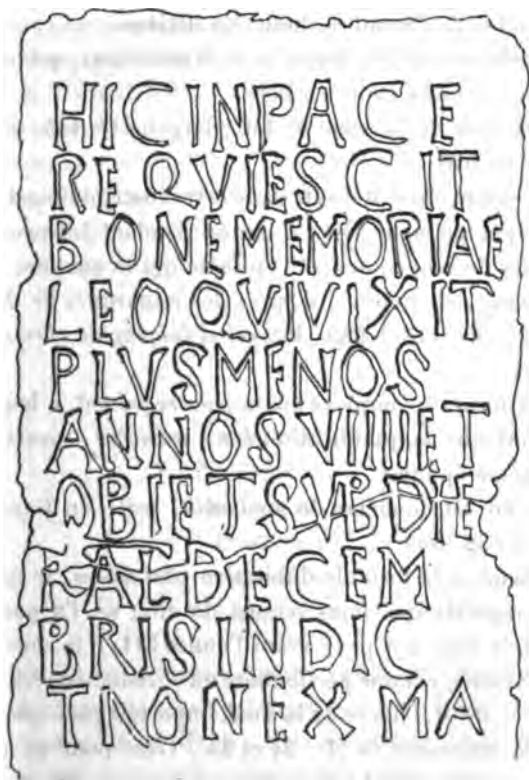 HICINPACE
REQVIESCIT
BONEMEMORIAE
LEOQVIVIXIT
PLVSMENOS
ANNOSVIIIIET
OBIETSVBDIE
KALDECEM
BRISINDIC
TNONEXMA